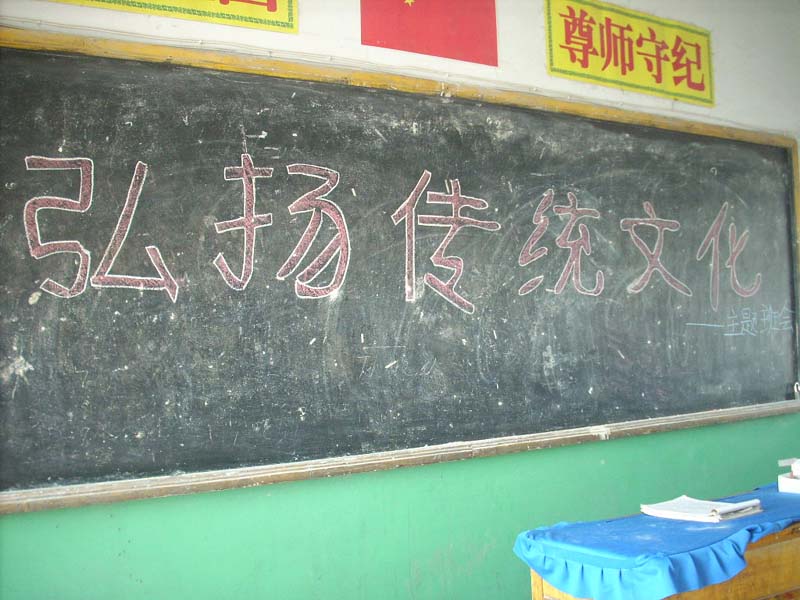 尊师守纪
弘扬传统文化
——主题班会